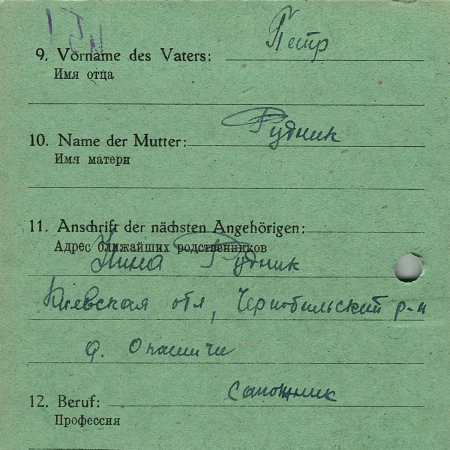 9. Vorname des Vaters: Петр
Имя отца
10. Name der Mutter: Рудник
Имя матери
11. Anschrift der nächsten Angehörigen:
Адрес ближайших родственников
Нина Рудник
Киевская обл, Чернобильский р-н
д. Опачичи
12. Beruf: сапожник
Профессия